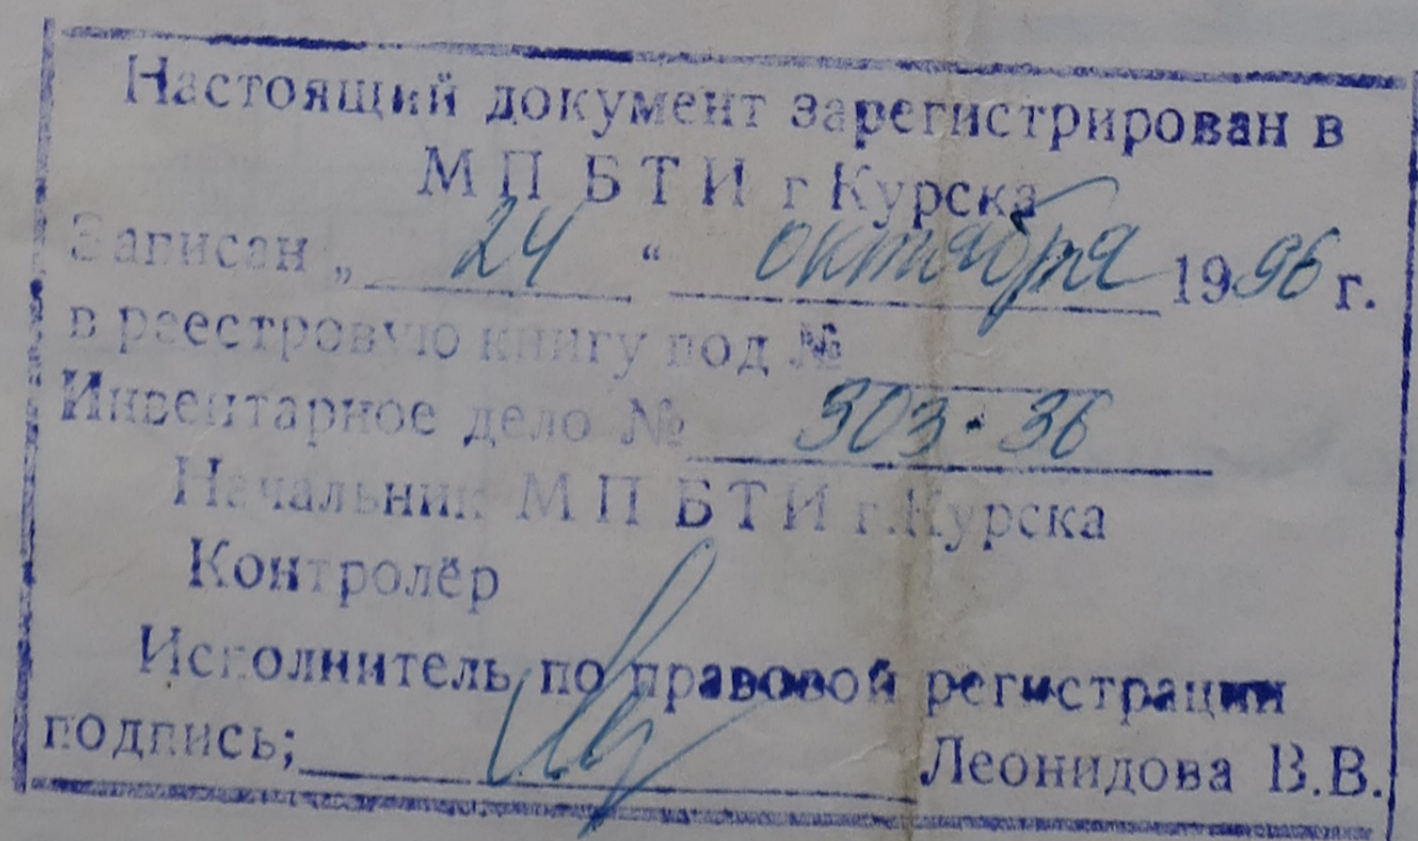 Настоящий документ зарегистрирован в
М П Б Т И г Курска
Записан „ 24 “ октября 1996 г.
в реестровую книгу под №
Инвентарное дело № 303·36
Начальник М П Б Т И г.Курска
Контролёр
Исполнитель по правовой регистрации
подпись; Леонидова В.В.